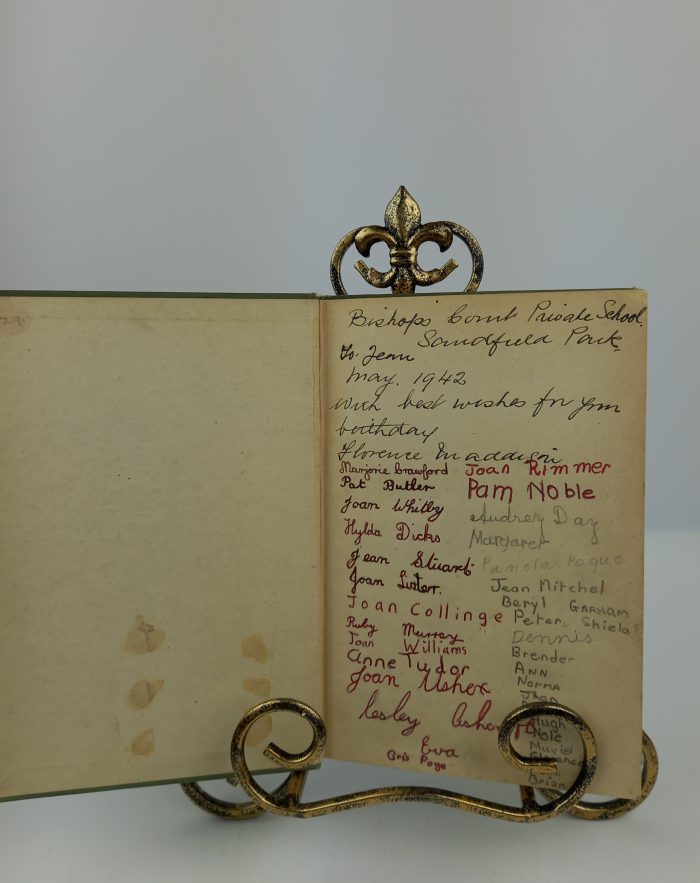 Bishops' Court Private School,
Sandfield Park.
To Jean
May. 1942
With best wishes for your
birthday
Florence Maddison
Marjorie Crawford
Pat Butler
Joan Whitby
Hylda Dicks
Jean Stuart
Joan Lister.
Joan Collinge
Ruby Murray
Joan Williams
Anne Tudor
Joan Usher
Lesley
Eva
Joan Rimmer
Pam Noble
Audrey Day
Margaret
Pamela
Jean Mitchel
Beryl
Peter. Shield
Dennis.
Brender
Ann
Norma
Hugh
Brian